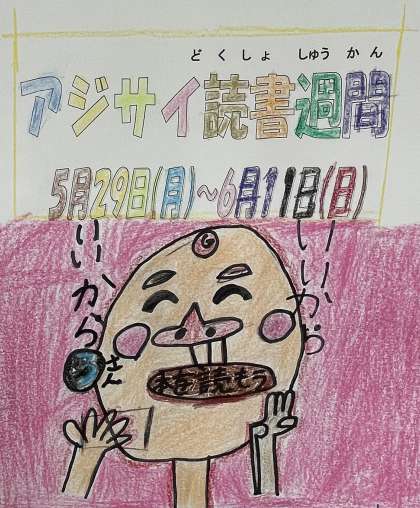 どくしょ しゅうかん
アジサイ読書週間
5月29日(月)～6月11日(日)
いいから
いーーから
さん
本を読もう